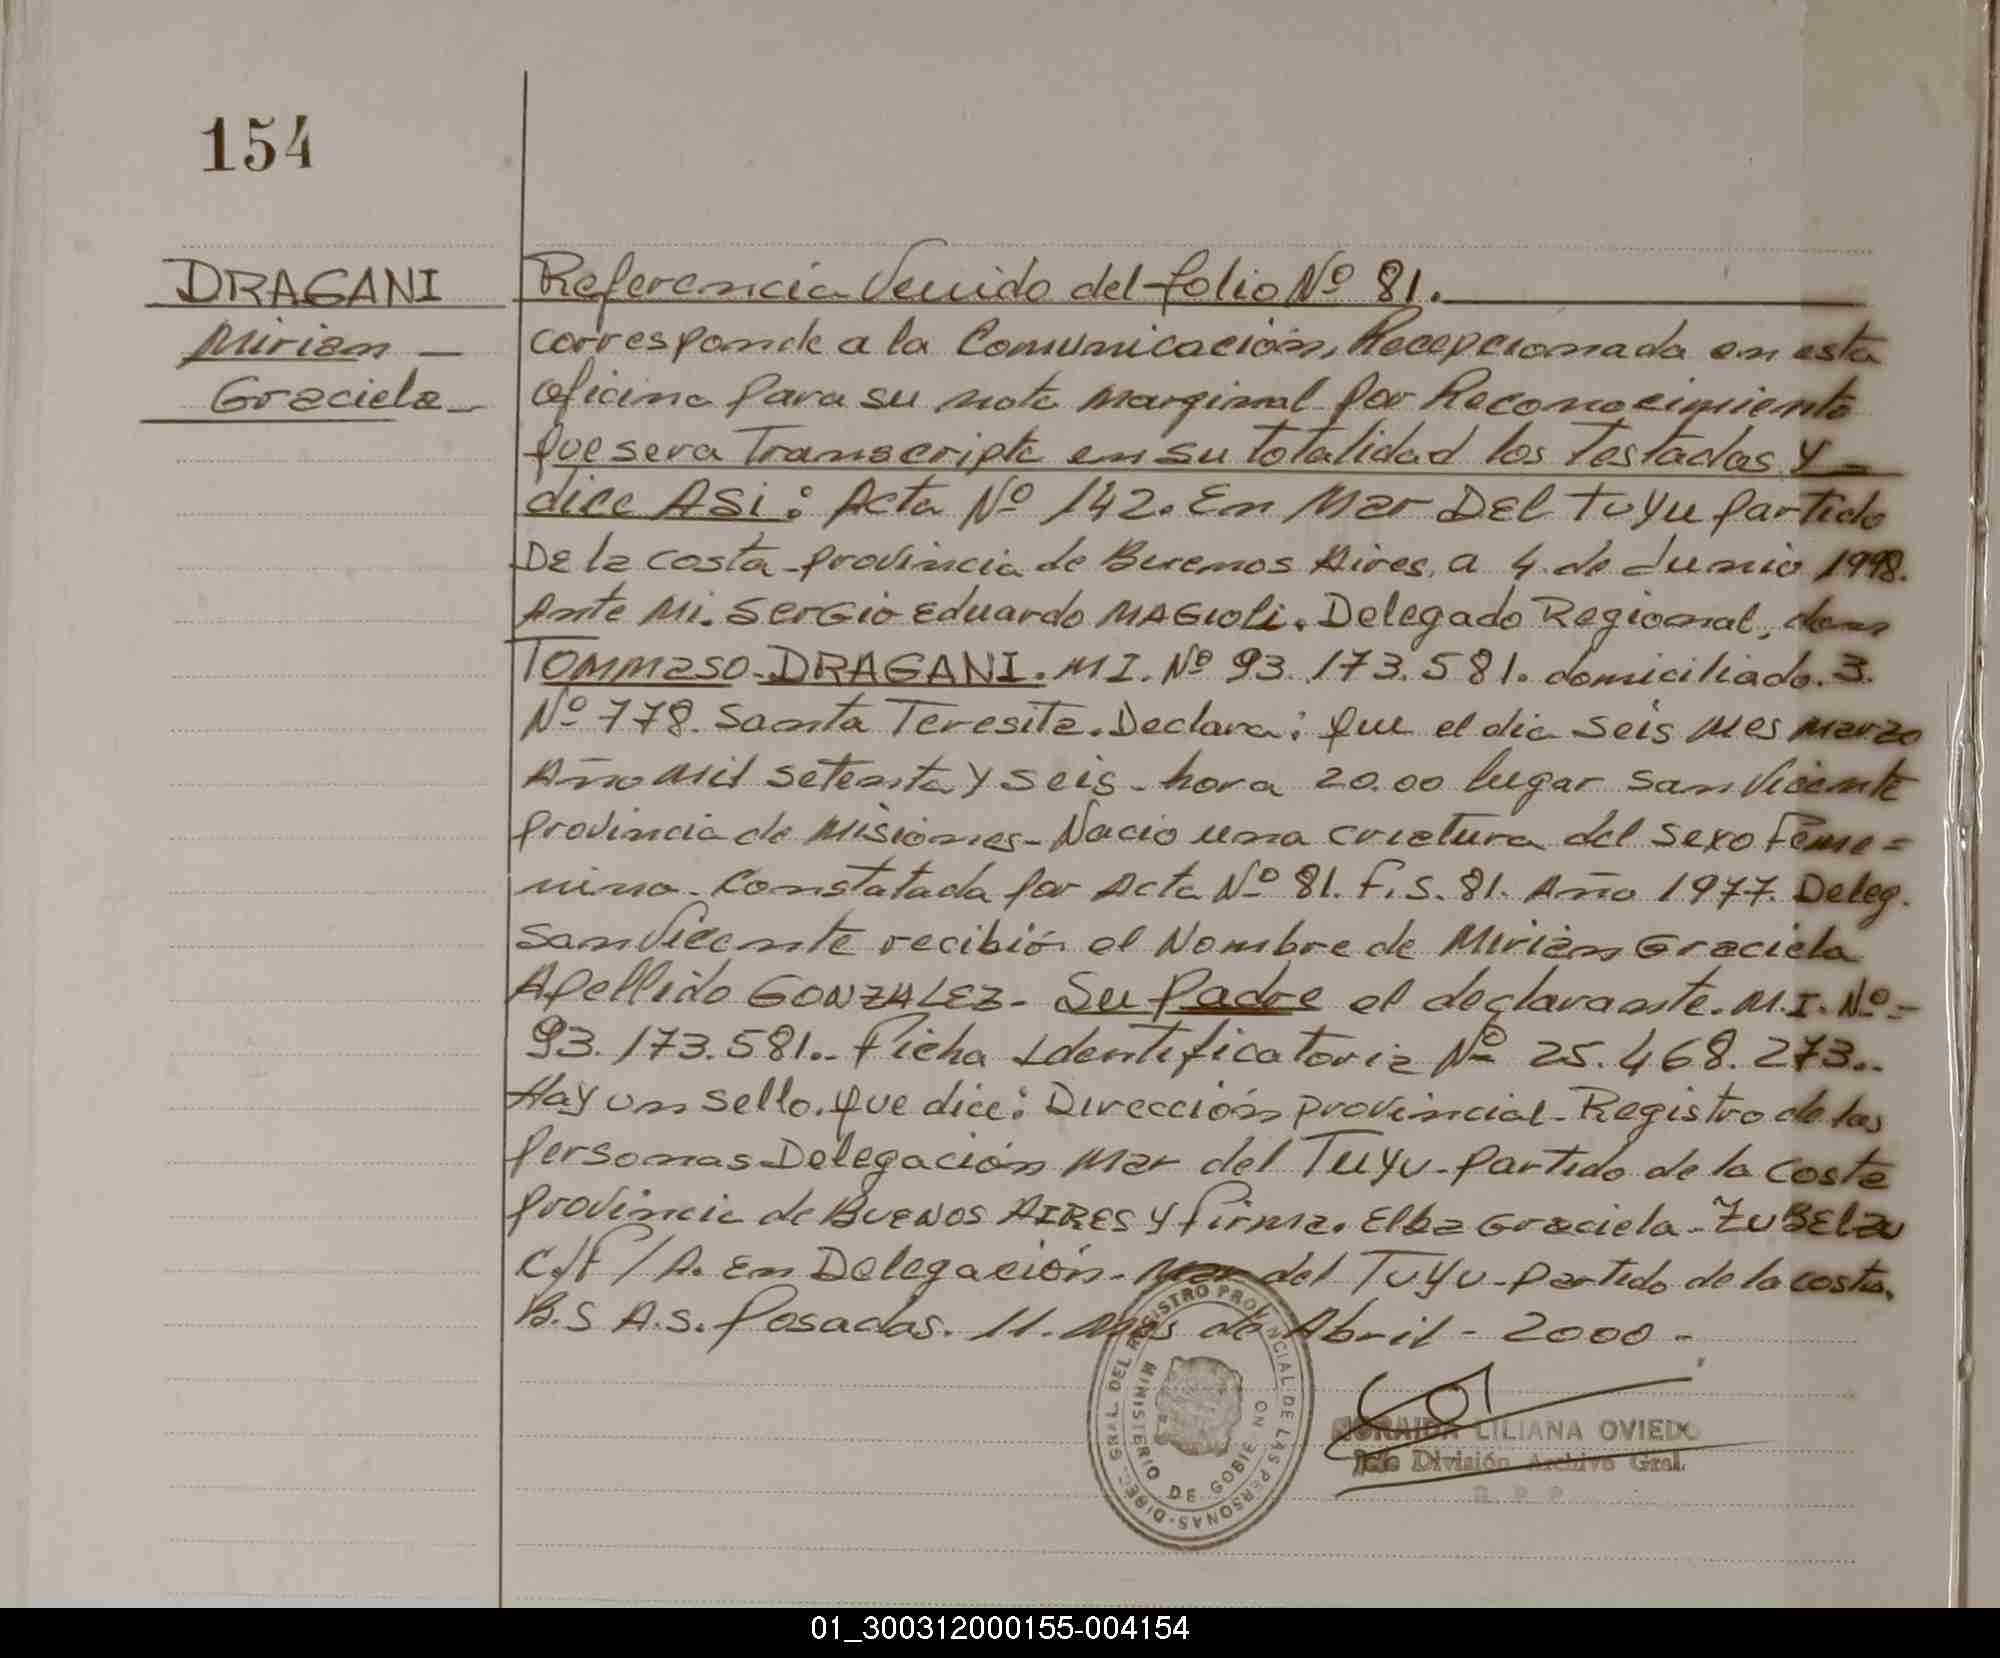 154
DRAGANI
Mirian —
Graciela —
Referencia Venido del folio Nº 81.
corresponde a la Comunicación, Recepcionada en esta
oficina para su nota marginal por Reconocimiento
que sera Transcripta en su totalidad los Testados Y -
dice ASi: Acta Nº 142. En Mar DEl TuYu partido
De la costa provincia de Buenos Aires, a 4 de Junio 1998.
Ante Mi. SerGio Eduardo MAGioli. Delegado Regional, don
Tommaso DRAGANI. M I. Nº 93.173.581. domiciliado. 3.
Nº 778. Santa Teresita. Declara: que el dia Seis Mes Marzo
Año Mil Setenta Y Seis - hora 20.00 lugar San Vicente
provincia de Misiones - Nacio una criatura del Sexo Feme =
nino. Constatada por Acta Nº 81. F.S. 81. Año 1977. Deleg.
San Vicente recibión el Nombre de Mirian Graciela
Apellido GONZALEZ - Su Padre el declarante. M.I. Nº -
93.173.581.. Ficha Identificatoria Nº 25.468.273..
Hay un Sello. que dice: Dirección provincial - Registro de las
personas Delegación Mar del TuYu - partido de la Costa
provincia de BUENOS AIRES Y firma. Elba Graciela - ZuBElzu
C./F / A. En Delegación. Mar del TuYu - partido de la costa.
B.S A.S. Posadas. 11. Mes de Abril - 2000 -
DIREC. GRAL. DEL REGISTRO PROVINCIAL DE LAS PERSONAS
MINISTERIO DE GOBIERNO
NORAIDA LILIANA OVIEDO
Jefe División Archivo Gral.
R. P. P.
01_300312000155-004154